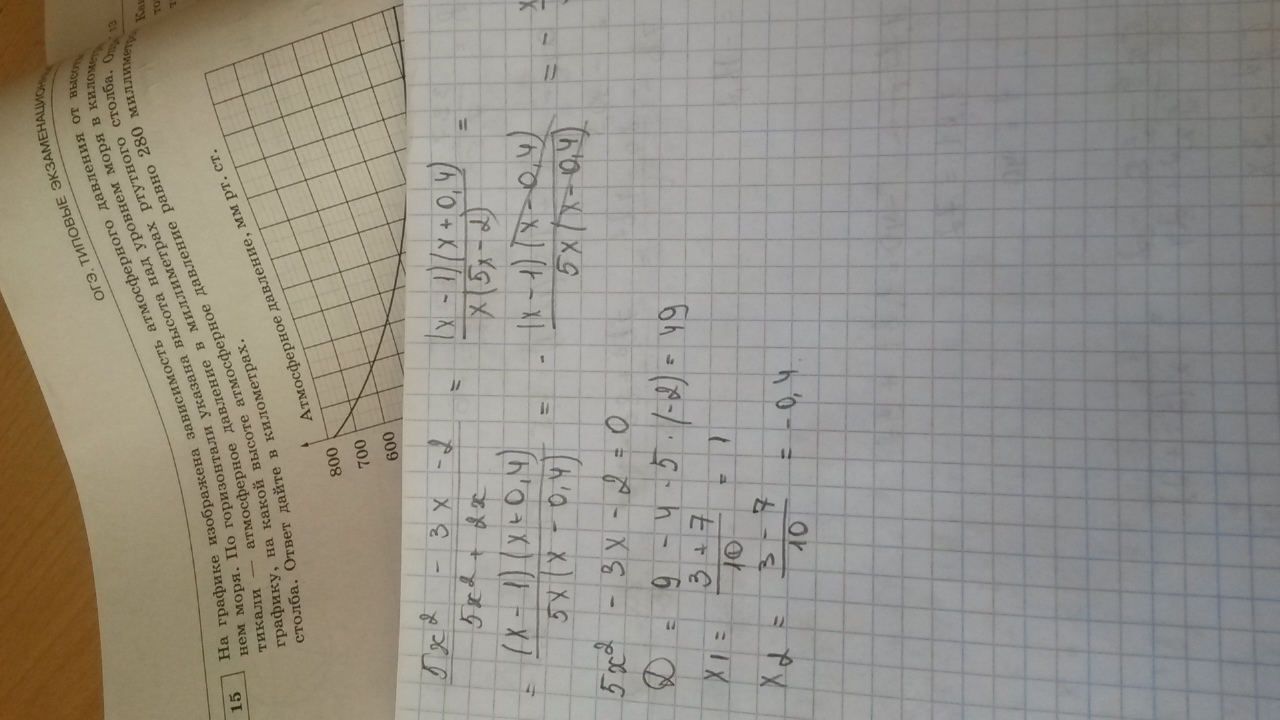 ОГЭ. ТИПОВЫЕ ЭКЗАМЕНАЦИОНН
15 На графике изображена зависимость атмосферного давления от высоты
нем моря. По горизонтали указана высота над уровнем моря в километр
тикали — атмосферное давление в миллиметрах ртутного столба.
графику, на какой высоте атмосферное давление равно 280 миллиметр
столба. Ответ дайте в километрах.
Атмосферное давление, мм рт. ст.
800
700
600
5x² - 3x - 2 / 5x² + 2x = (x - 1)(x + 0,4) / x(5x - 2) =
= (x - 1)(x + 0,4) / 5x(x - 0,4) = - (x - 1)(x - 0,4) / 5x(x - 0,4) = - x
5x² - 3x - 2 = 0
D = 9 - 4 · 5 · (-2) = 49
x1 = 3 + 7 / 10 = 1
x2 = 3 - 7 / 10 = -0,4.